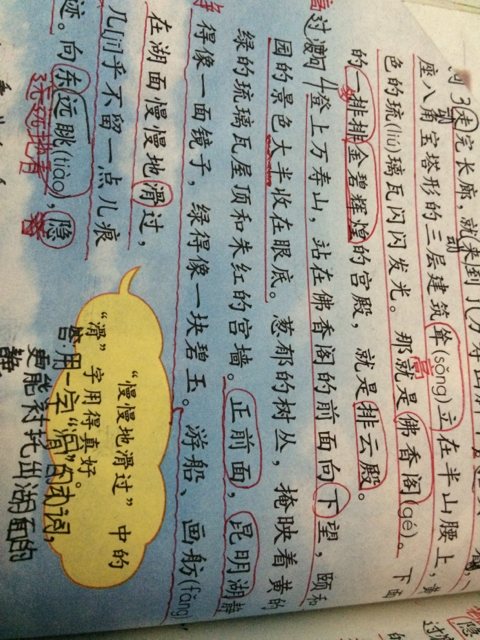 走完长廊，就来到了万寿山脚下
座八角宝塔形的三层建筑耸(sǒng)立在半山腰上，黄
色的琉(liú)璃瓦闪闪发光。那就是佛香阁(gé)。下面
的一排排金碧辉煌的宫殿，就是排云殿。
登上万寿山，站在佛香阁的前面向下望，颐和
园的景色大半收在眼底。葱郁的树丛，掩映着黄的
绿的琉璃瓦屋顶和朱红的宫墙。正前面，昆明湖静
得像一面镜子，绿得像一块碧玉。游船、画舫(fǎng)
在湖面慢慢地滑过，
几乎不留一点儿痕
迹。向东远眺(tiào)，隐
“慢慢地滑过”中的
“滑”字用得真好
答用一字“滑”的动词，
更能衬托出湖面的
静